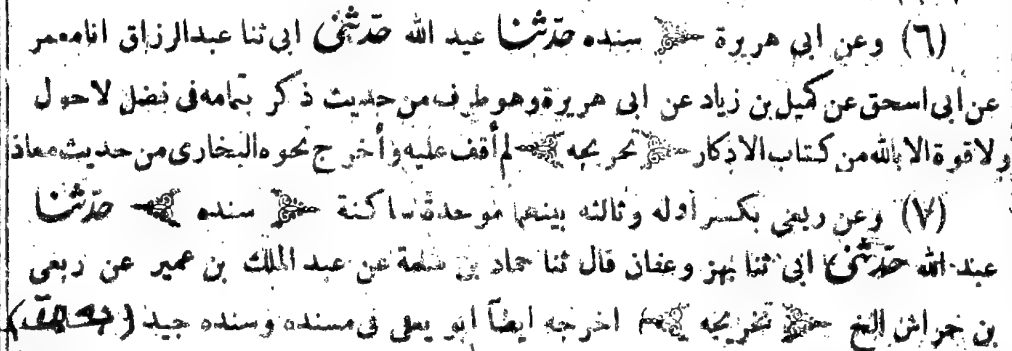 (٦) وعن ابى هريرة سنده حدّثنا عبد الله حدّثنى ابى ثنا عبدالرزاق انا معمر
عن ابى اسحق عن كميل بن زياد عن ابى هريرة وهو طرف من حديث ذكر بتمامه فى فضل لا حول
ولا قوة الا بالله من كتاب الاذكار تخريجه لم أقف عليه وأخرج نحوه البخارى من حديث معاذ
(٧) وعن ربعي بكسر أوله وثالثه بينهما موحدة ساكنة سنده حدّثنا
عبد الله حدّثنى ابى ثنا بهز وعفان قال ثنا حماد بن سلمة عن عبد الملك بن عمير عن ربعى
بن حراش الخ تخريجه اخرجه ايضاً ابو يعلى فى مسنده وسنده جيد